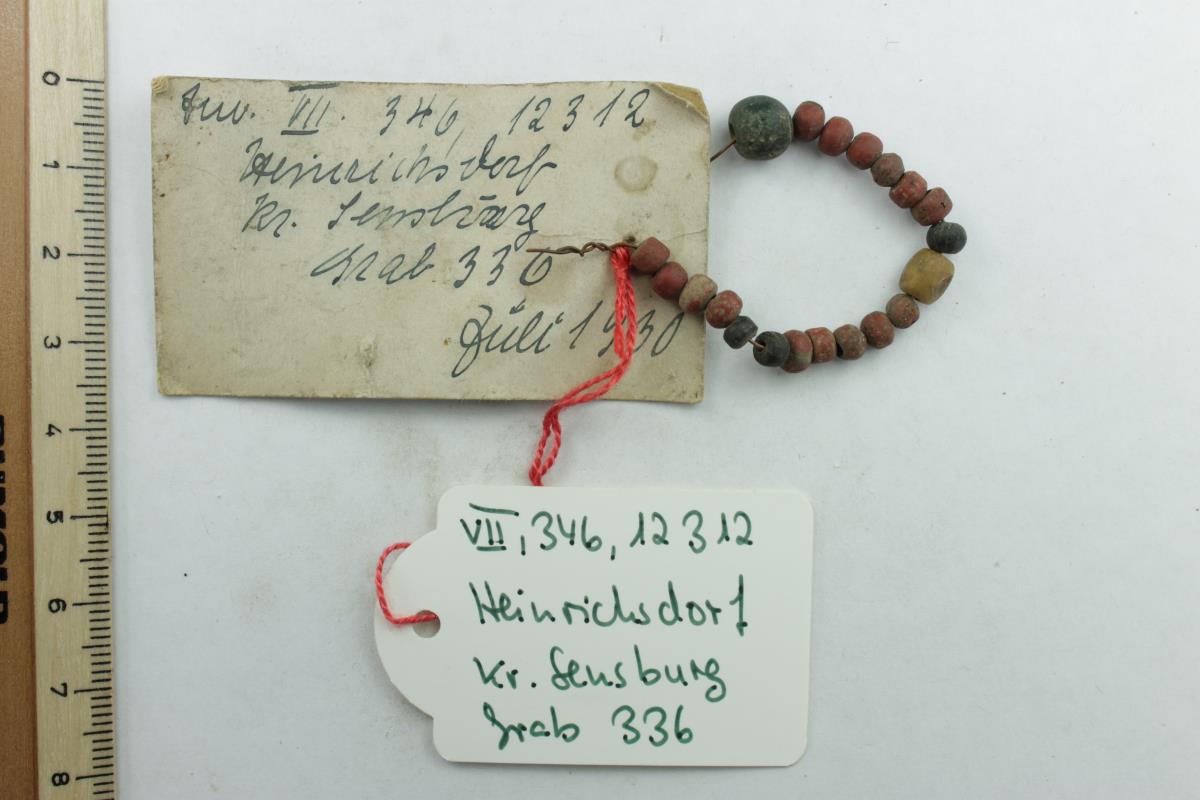 Inv. VII. 346, 12312
Heinrichsdorf
Kr. Sensburg
Grab 336
Juli 1930
VII, 346, 12312
Heinrichsdorf
Kr. Sensburg
Grab 336
0
1
2
3
4
5
6
7
8